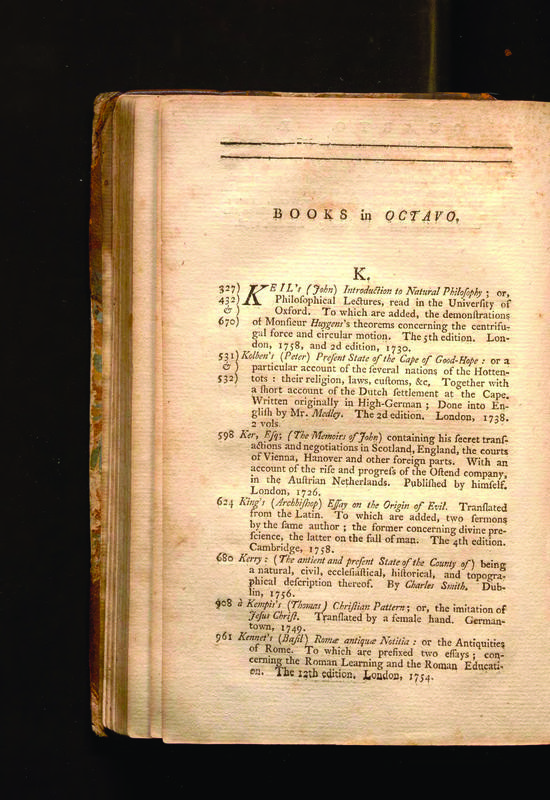 BOOKS in OCTAVO.
K.
327) KEIL's (John) Introduction to Natural Philosophy ; or,
432) Philosophical Lectures, read in the University of
& ) Oxford. To which are added, the demonstrations
670) of Monsieur Huygens's theorems concerning the centrifu-
gal force and circular motion. The 5th edition. Lon-
don, 1758, and 2d edition, 1730.
531) Kolben's (Peter) Present State of the Cape of Good-Hope : or a
& ) particular account of the several nations of the Hotten-
532) tots : their religion, laws, customs, &c. Together with
a short account of the Dutch settlement at the Cape.
Written originally in High-German ; Done into En-
glish by Mr. Medley. The 2d edition. London, 1738.
2 vols.
598 Ker, Esq; (The Memoirs of John) containing his secret trans-
actions and negotiations in Scotland, England, the courts
of Vienna, Hanover and other foreign parts. With an
account of the rise and progress of the Ostend company,
in the Austrian Netherlands. Published by himself.
London, 1726.
624 King's (Archbishop) Essay on the Origin of Evil. Translated
from the Latin. To which are added, two sermons
by the same author ; the former concerning divine pre-
science, the latter on the fall of man. The 4th edition.
Cambridge, 1758.
680 Kerry : (The antient and present State of the County of) being
a natural, civil, ecclesiastical, historical, and topogra-
phical description thereof. By Charles Smith. Dub-
lin, 1756.
908 à Kempis's (Thomas) Christian Pattern ; or, the imitation of
Jesus Christ. Translated by a female hand. German-
town, 1749.
961 Kennet's (Basil) Romæ antiquæ Notitia : or the Antiquities
of Rome. To which are prefixed two essays ; con-
cerning the Roman Learning and the Roman Educati-
on. The 12th edition. London, 1754.